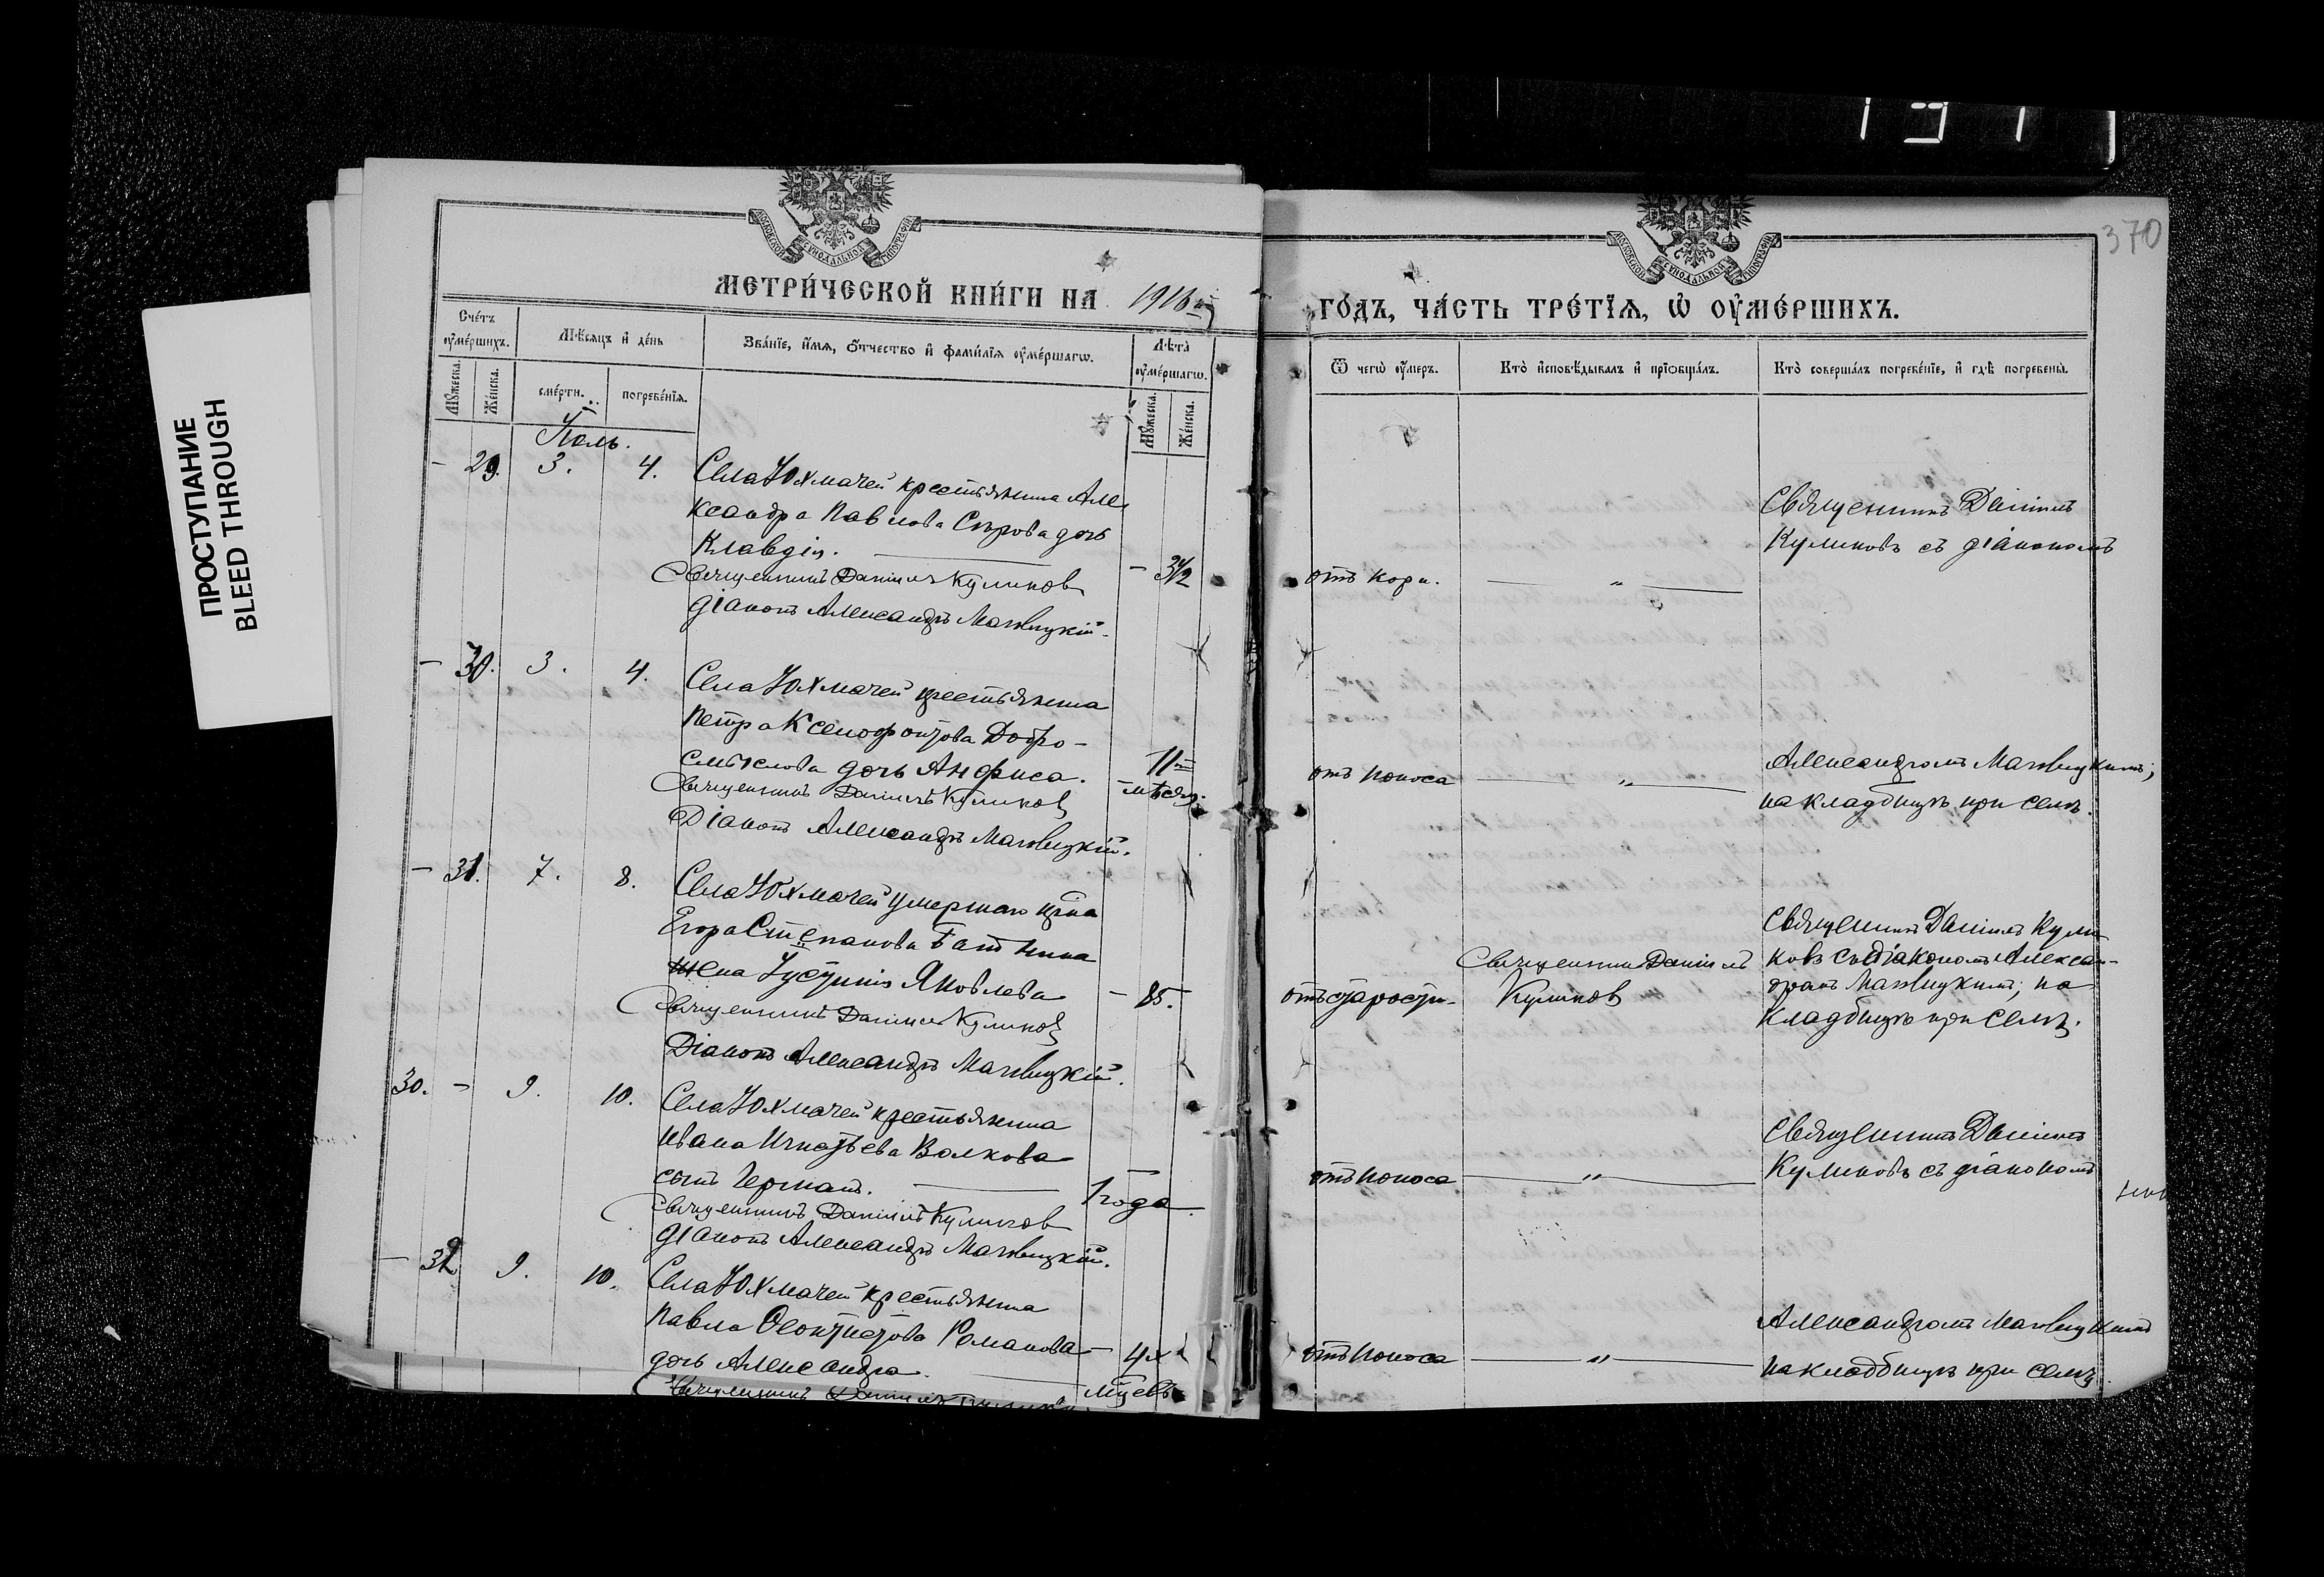 191
ПРОСТУПАНИЕ
BLEED THROUGH
370
МОСКОВСКОЙ СѴНОДАЛЬНОЙ ТИПОГРАФІИ
МОСКОВСКОЙ СѴНОДАЛЬНОЙ ТИПОГРАФІИ
МЕТРИ́ЧЕСКОЙ КНИ́ГИ НА 1916й
ГО́ДЪ, ЧА́СТЬ ТРЕ́ТЇѦ, Ѡ ОУ҆МЕ́РШИХЪ.
Сче́тъ оу҆ме́ршихъ.
Мꙋ́жеска.
Же́нска.
Мѣ́сѧцъ и҆ де́нь
сме́рти.
погребе́нїѧ.
Зва́нїе, и҆́мѧ, ѻ҆́тчество и҆ фами́лїѧ оу҆ме́ршагѡ.
Лѣ́та оу҆ме́ршагѡ.
Мꙋ́жеска.
Же́нска.
Ѿ чегѡ̀ оу҆́меръ.
Кто̀ и҆сповѣ́дывалъ и҆ прїѡбща́лъ.
Кто̀ соверша́лъ погребе́нїе, и҆ гдѣ̀ погребены̀.
Іюль.
- 29. 3. 4. Села Юхмачей крестьянина Але
ксандра Павлова Сѣрова дочь
Клавдія. - 3½
Священникъ Даніилъ Куликов
діаконъ Александръ Мазвицкій.
отъ кори. — „ —
Священникъ Даніилъ
Куликовъ съ діакономъ
- 30. 3. 4. Села Юхмачей крестьянина
Петра Ксенофонтова Добро-
смыслова дочь Анфиса. 11ти
мѣсяц.
Священникъ Даніилъ Куликов
Діаконъ Александръ Мазвицкій.
отъ поноса — „ —
Александромъ Мазвицкимъ;
на кладбищѣ при селѣ.
- 31. 7. 8. Села Юхмачей умершаго кр-на
Егора Степанова
жена Іустинія Яковлева - 85.
Священникъ Даніилъ Куликов
Діаконъ Александръ Мазвицкій.
отъ старости.
Священникъ Даніилъ
Куликов
Священникъ Даніилъ Кули
ковъ съ діакономъ Алексан-
дромъ Мазвицкимъ; на
кладбищѣ при селѣ.
30. - 9. 10. Села Юхмачей крестьянина
Ивана Игнатьева Волкова
сынъ Германъ. 1 года -
Священникъ Даніилъ Куликов
діаконъ Александръ Мазвицкій.
отъ поноса — „ —
Священникъ Даніилъ
Куликовъ съ діакономъ
- 32 9. 10. Села Юхмачей крестьянина
Павла Романова
дочь Александра. - 4х
мцевъ
Священникъ Даніилъ Куликов
отъ поноса — „ —
Александромъ Мазвицкимъ
на кладбищѣ при селѣ.